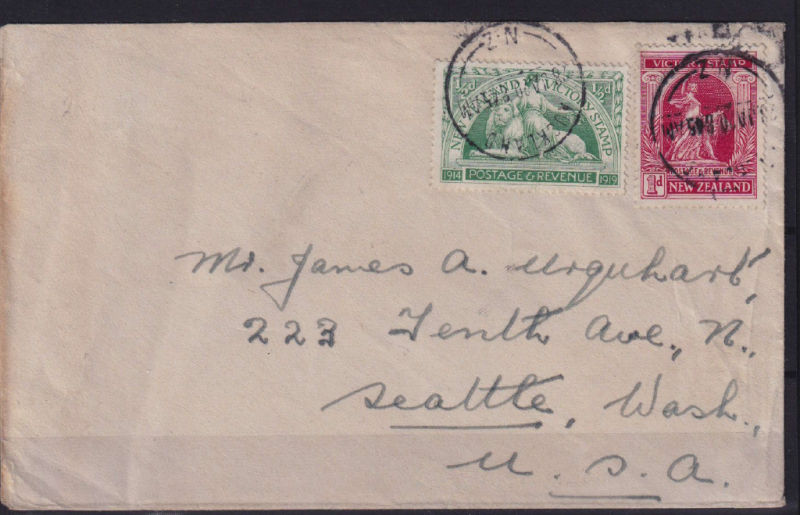 ½d ½d
NEW ZEALAND VICTORY STAMP
1914 POSTAGE & REVENUE 1919
VICTORY STAMP
1d NEW ZEALAND
N.Z
AUCKLAND
N.Z
Mr. James A. Urquhart,
223 Tenth Ave., N.,
Seattle, Wash.,
U.S.A.